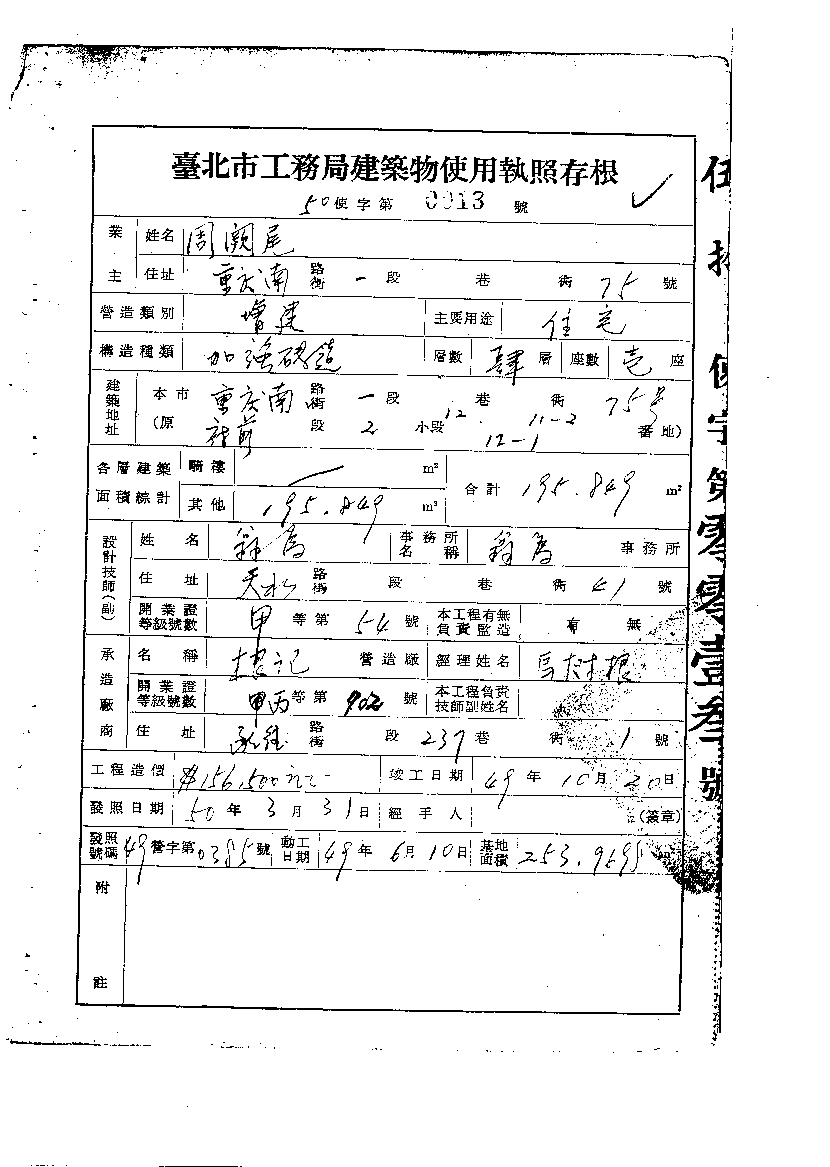 臺北市工務局建築物使用執照存根
50使字第 0013 號
業主 姓名 周 尾
住址 重庆南 路街 一 段 巷 衖 75 號
營造類別 增建 主要用途 住宅
構造種類 加強磚造 層數 肆 層 座數 壱 座
建築地址 本市 重庆南 路街 一 段 巷 衖 75号
(原 段 2 小段 12 11-2 12-1 番地)
各層建築面積綜計 騎樓 m² 合計 195.849 m²
其他 195.849 m²
設計技師(副) 姓名 事務所名稱 事務所
住址 天水 路街 段 巷 衖 41 號
開業證等級號數 甲 等第 54 號 本工程有無負責監造 有 無
承造廠商 名稱 記 營造廠 經理姓名 樹根
開業證等級號數 丙 等第 902 號 本工程負責技師副姓名
住址 路街 段 237 巷 衖 1 號
工程造價 156,500元 竣工日期 49 年 10 月 20 日
發照日期 50 年 3 月 31 日 經手人 (簽章)
發照號碼 49 營字第 0385 號 動工日期 49 年 6 月 10 日 基地面積 253.9695
附註
伍拾使字第零零壹叁號